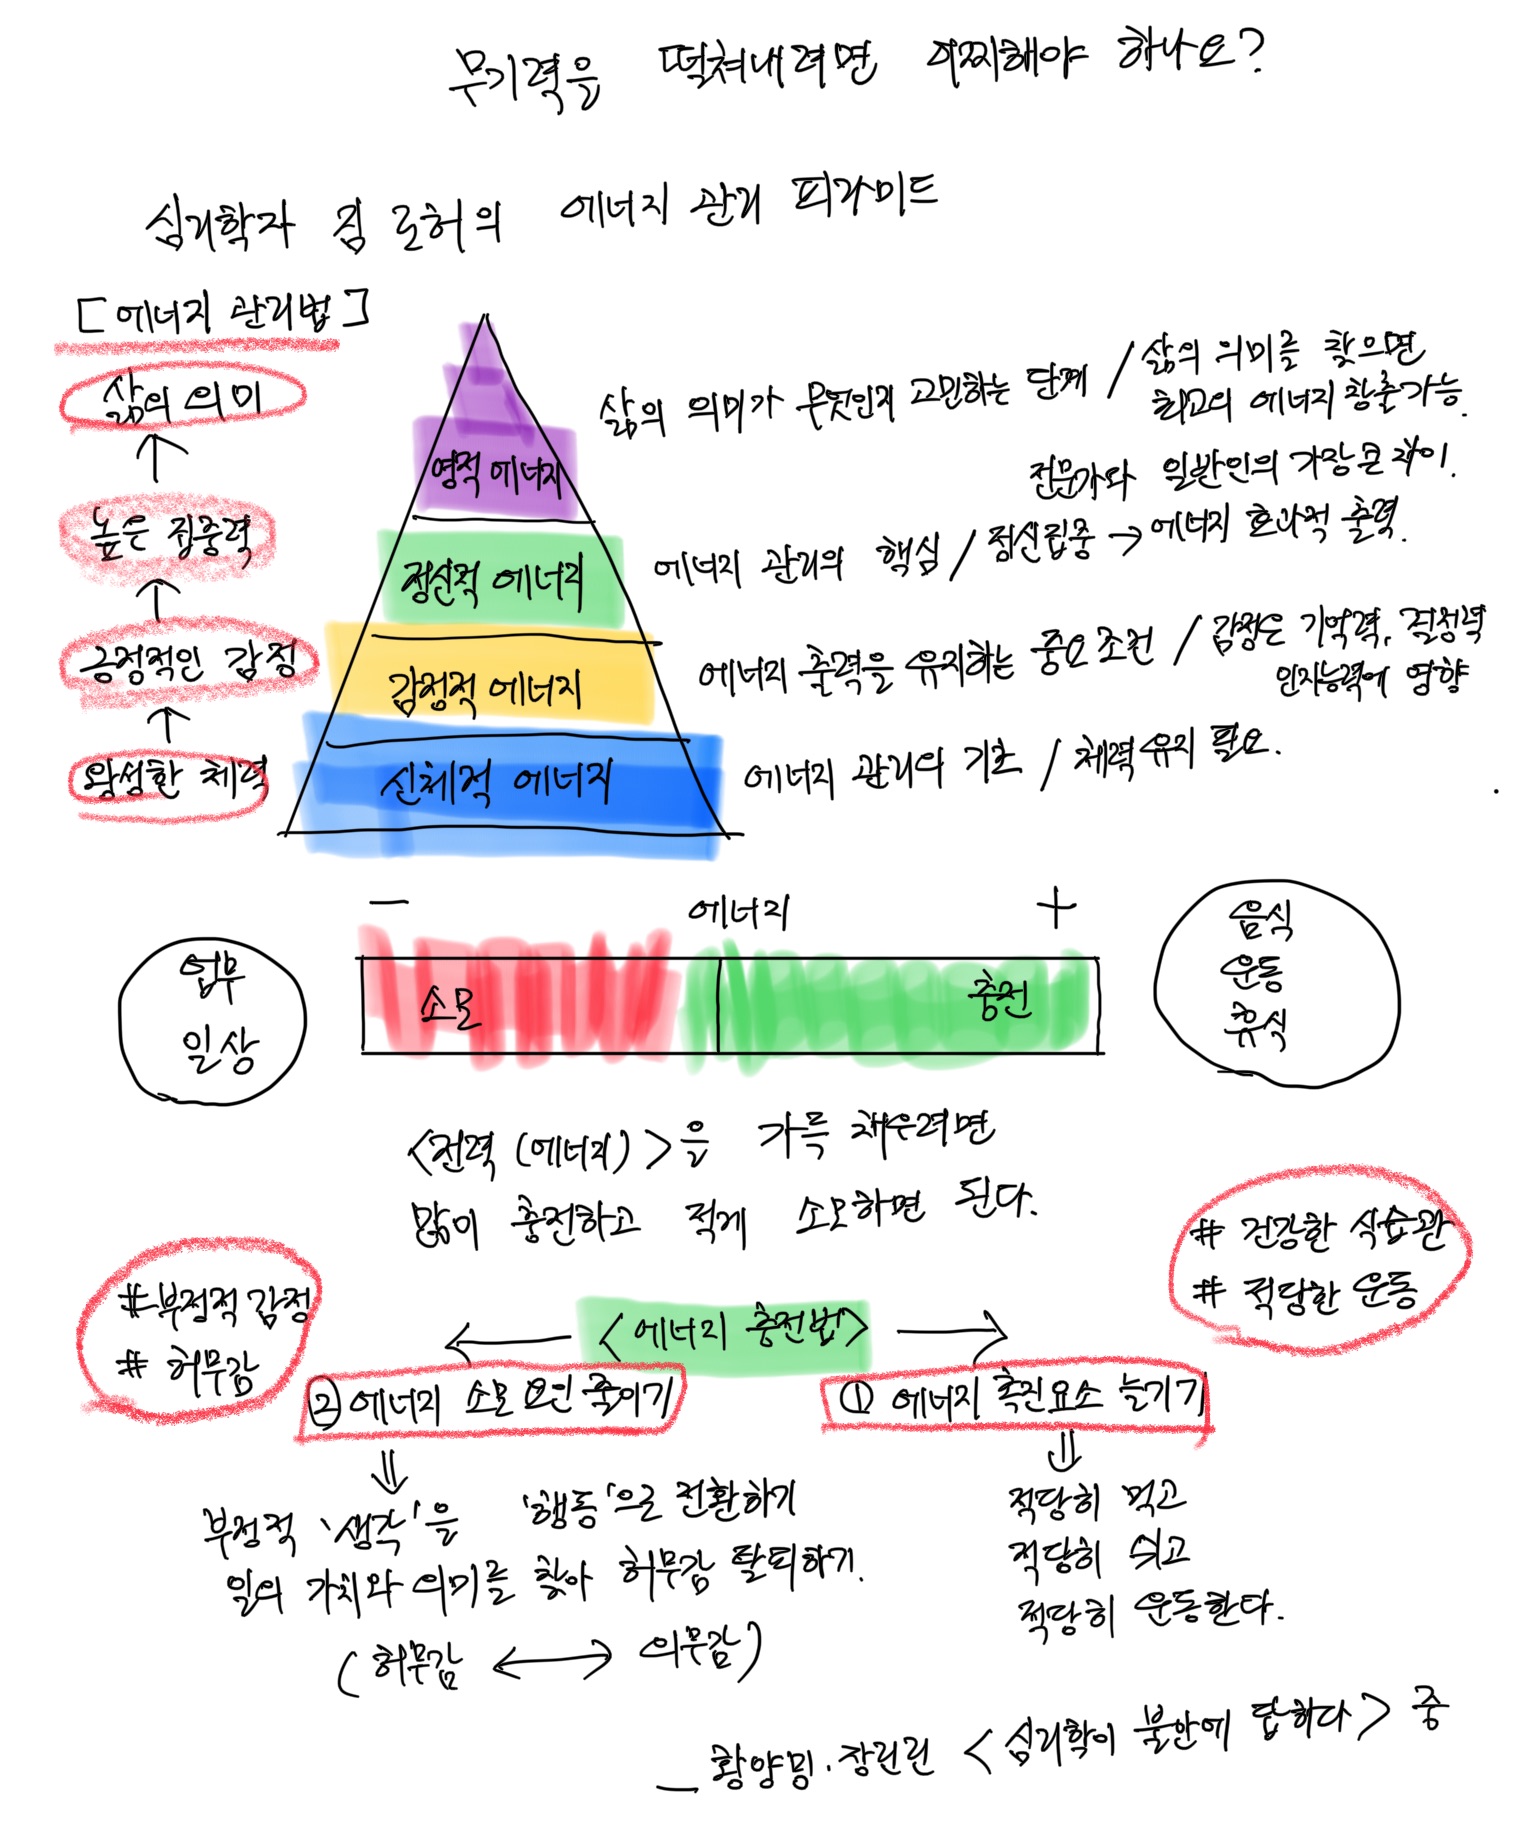 무기력을 떨쳐내려면 어찌해야 하나요?
심리학자 짐 로허의 에너지 관리 피라미드
[에너지 관리법]
삶의 의미
↑
높은 집중력
↑
긍정적인 감정
↑
왕성한 체력
영적 에너지
삶의 의미가 무엇인지 고민하는 단계 / 삶의 의미를 찾으면
최고의 에너지 창출가능.
정신적 에너지
전문가와 일반인의 가장 큰 차이.
에너지 관리의 핵심 / 정신집중 → 에너지 효과적 출력.
감정적 에너지
에너지 출력을 유지하는 중요조건 / 감정은 기억력, 결정력
인지능력에 영향
신체적 에너지
에너지 관리의 기초 / 체력유지 필요.
− 에너지 +
업무
일상
소모 충전
음식
운동
휴식
<전력 (에너지)>을 가득 채우려면
많이 충전하고 적게 소모하면 된다.
# 부정적 감정
# 허무감
# 건강한 식습관
# 적당한 운동
← <에너지 충전법> →
② 에너지 소모 요인 줄이기
① 에너지 촉진요소 늘기기
⇓
부정적 '생각'을 '행동'으로 전환하기
일의 가치와 의미를 찾아 허무감 탈피하기.
(허무감 ↔ 의무감)
⇓
적당히 먹고
적당히 쉬고
적당히 운동한다.
_ 황양밍·장린린 <심리학이 불안에 답하다> 중